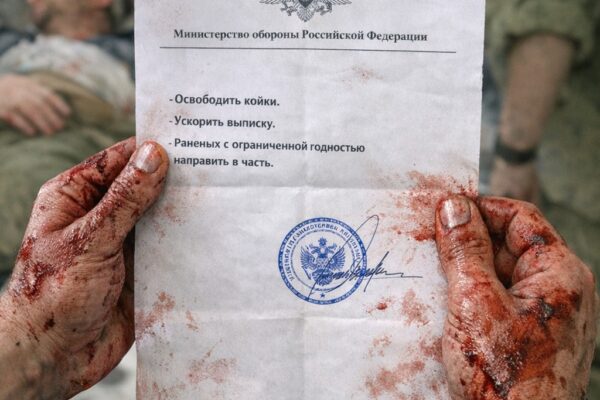 Министерство обороны Российской Федерации
- Освободить койки.
- Ускорить выписку.
- Раненых с ограниченной годностью
направить в часть.